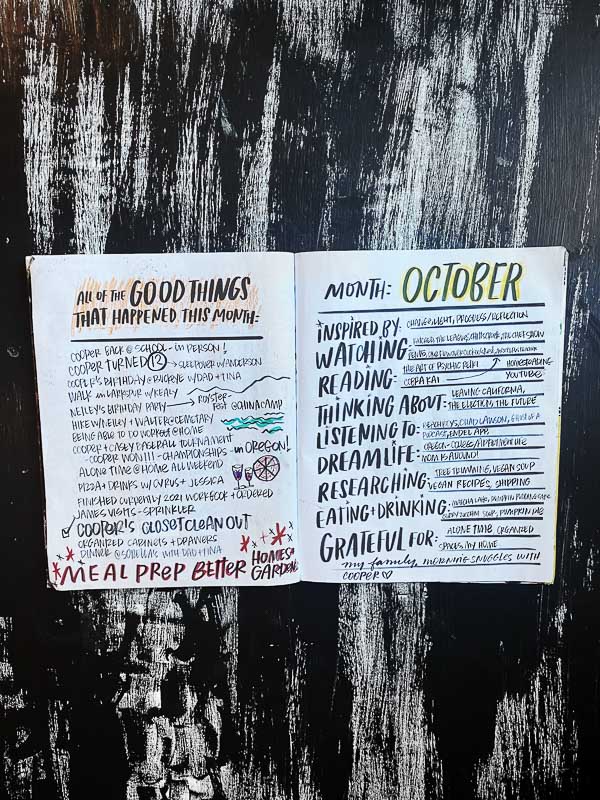 ALL OF THE GOOD THINGS
THAT HAPPENED THIS MONTH:
COOPER BACK @ SCHOOL - IN PERSON!
COOPER TURNED 12 → SLEEPOVER W/ANDERSON
COOPER'S BIRTHDAY @ W/DAD + TINA
WALK IN LARKSPUR W/KEALY
NELLEY'S BIRTHDAY PARTY → ROYSTER-
FEST @ CHINA CAMP
HIKE W/NELLEY + WALTER + CEMETARY
BEING ABLE TO WORKOUT @ HOME
COOPER + CASEY BASEBALL TOURNAMENT
- COOPER WON!!! - CHAMPIONSHIPS - IN OREGON!
ALONE TIME @ HOME ALL WEEKEND
PIZZA + DRINKS W/ CYRUS + JESSICA
FINISHED CURRENTLY 2021 WORKBOOK + ORDERED
JAMES VISITS - SPRINKLER
COOPER'S CLOSET CLEAN OUT
ORGANIZED CABINETS + DRAWERS
DINNER @ SORELLA'S WITH DAD + TINA
MEAL PREP BETTER HOMES + GARDENS
MONTH: OCTOBER
INSPIRED BY: CHANGE, LIGHT, PROGRESS/REFLECTION
WATCHING: THE CHEF SHOW
READING: THE ART OF PSYCHIC REIKI
COBRA KAI → HOMESTEADING
YOUTUBE'S
THINKING ABOUT: LEAVING CALIFORNIA,
THE ELECTION, THE FUTURE
LISTENING TO: CHAD LAWSON,
PODCAST, ENDEL APP
DREAM LIFE: OREGON - COLLEGE/APARTMENT LIFE
MOM IS AROUND!
RESEARCHING: TREE TRIMMING, VEGAN SOUP
VEGAN RECIPES, SHIPPING
EATING + DRINKING: MATCHA LATTE, PUMPKIN
SOUPS, PUMPKIN
GRATEFUL FOR: ALONE TIME ORGANIZED
SPACES, MY HOME
my family, MORNING SNUGGLES WITH
COOPER ♡